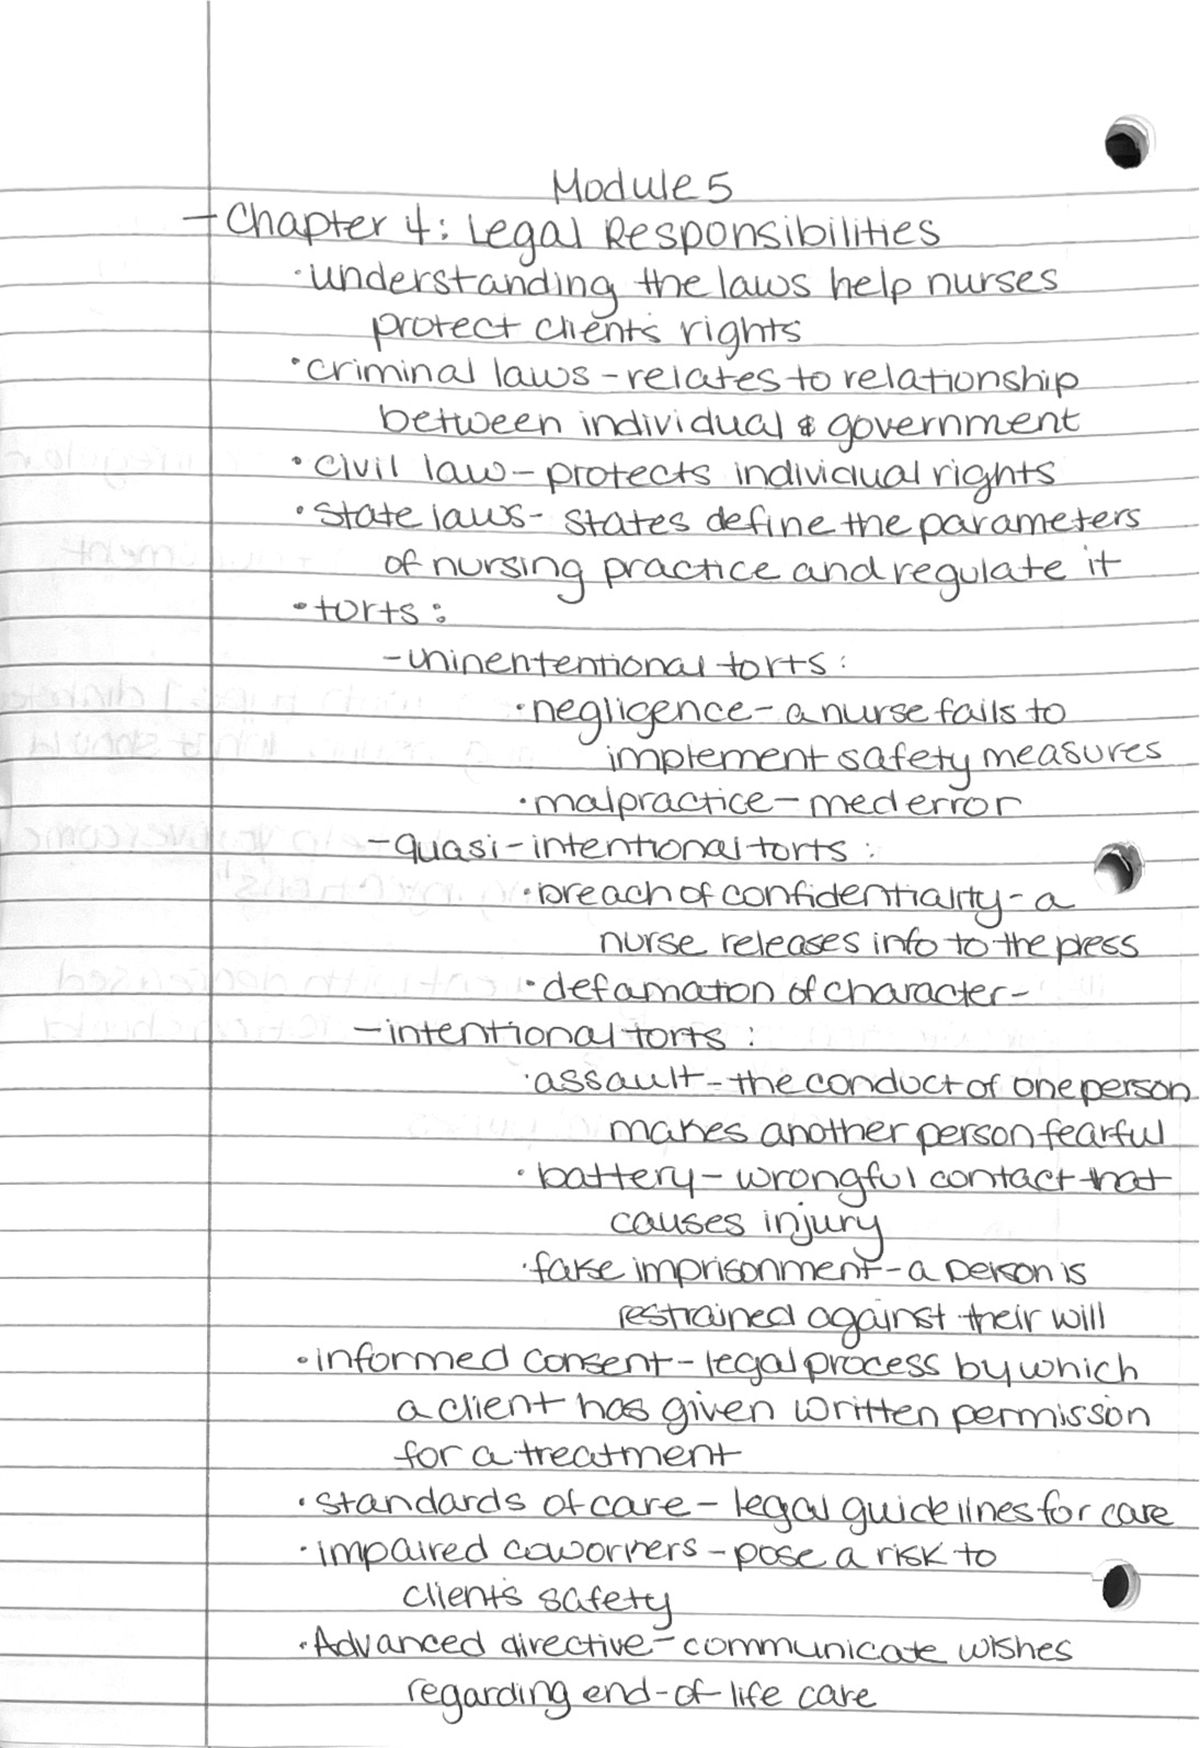 Module 5
- Chapter 4: Legal Responsibilities
• understanding the laws help nurses
protect clients rights
• criminal laws - relates to relationship
between individual & government
• civil law - protects individual rights
• state laws - states define the parameters
of nursing practice and regulate it
• torts:
- uninentional torts:
• negligence - a nurse fails to
implement safety measures
• malpractice - med error
- quasi-intentional torts:
• breach of confidentiality - a
nurse releases info to the press
• defamation of character -
- intentional torts:
• assault - the conduct of one person
makes another person fearful
• battery - wrongful contact that
causes injury
• false imprisonment - a person is
restrained against their will
• informed consent - legal process by which
a client has given written permisson
for a treatment
• standards of care - legal guidelines for care
• impaired coworkers - pose a risk to
clients safety
• Advanced directive - communicate wishes
regarding end-of-life care